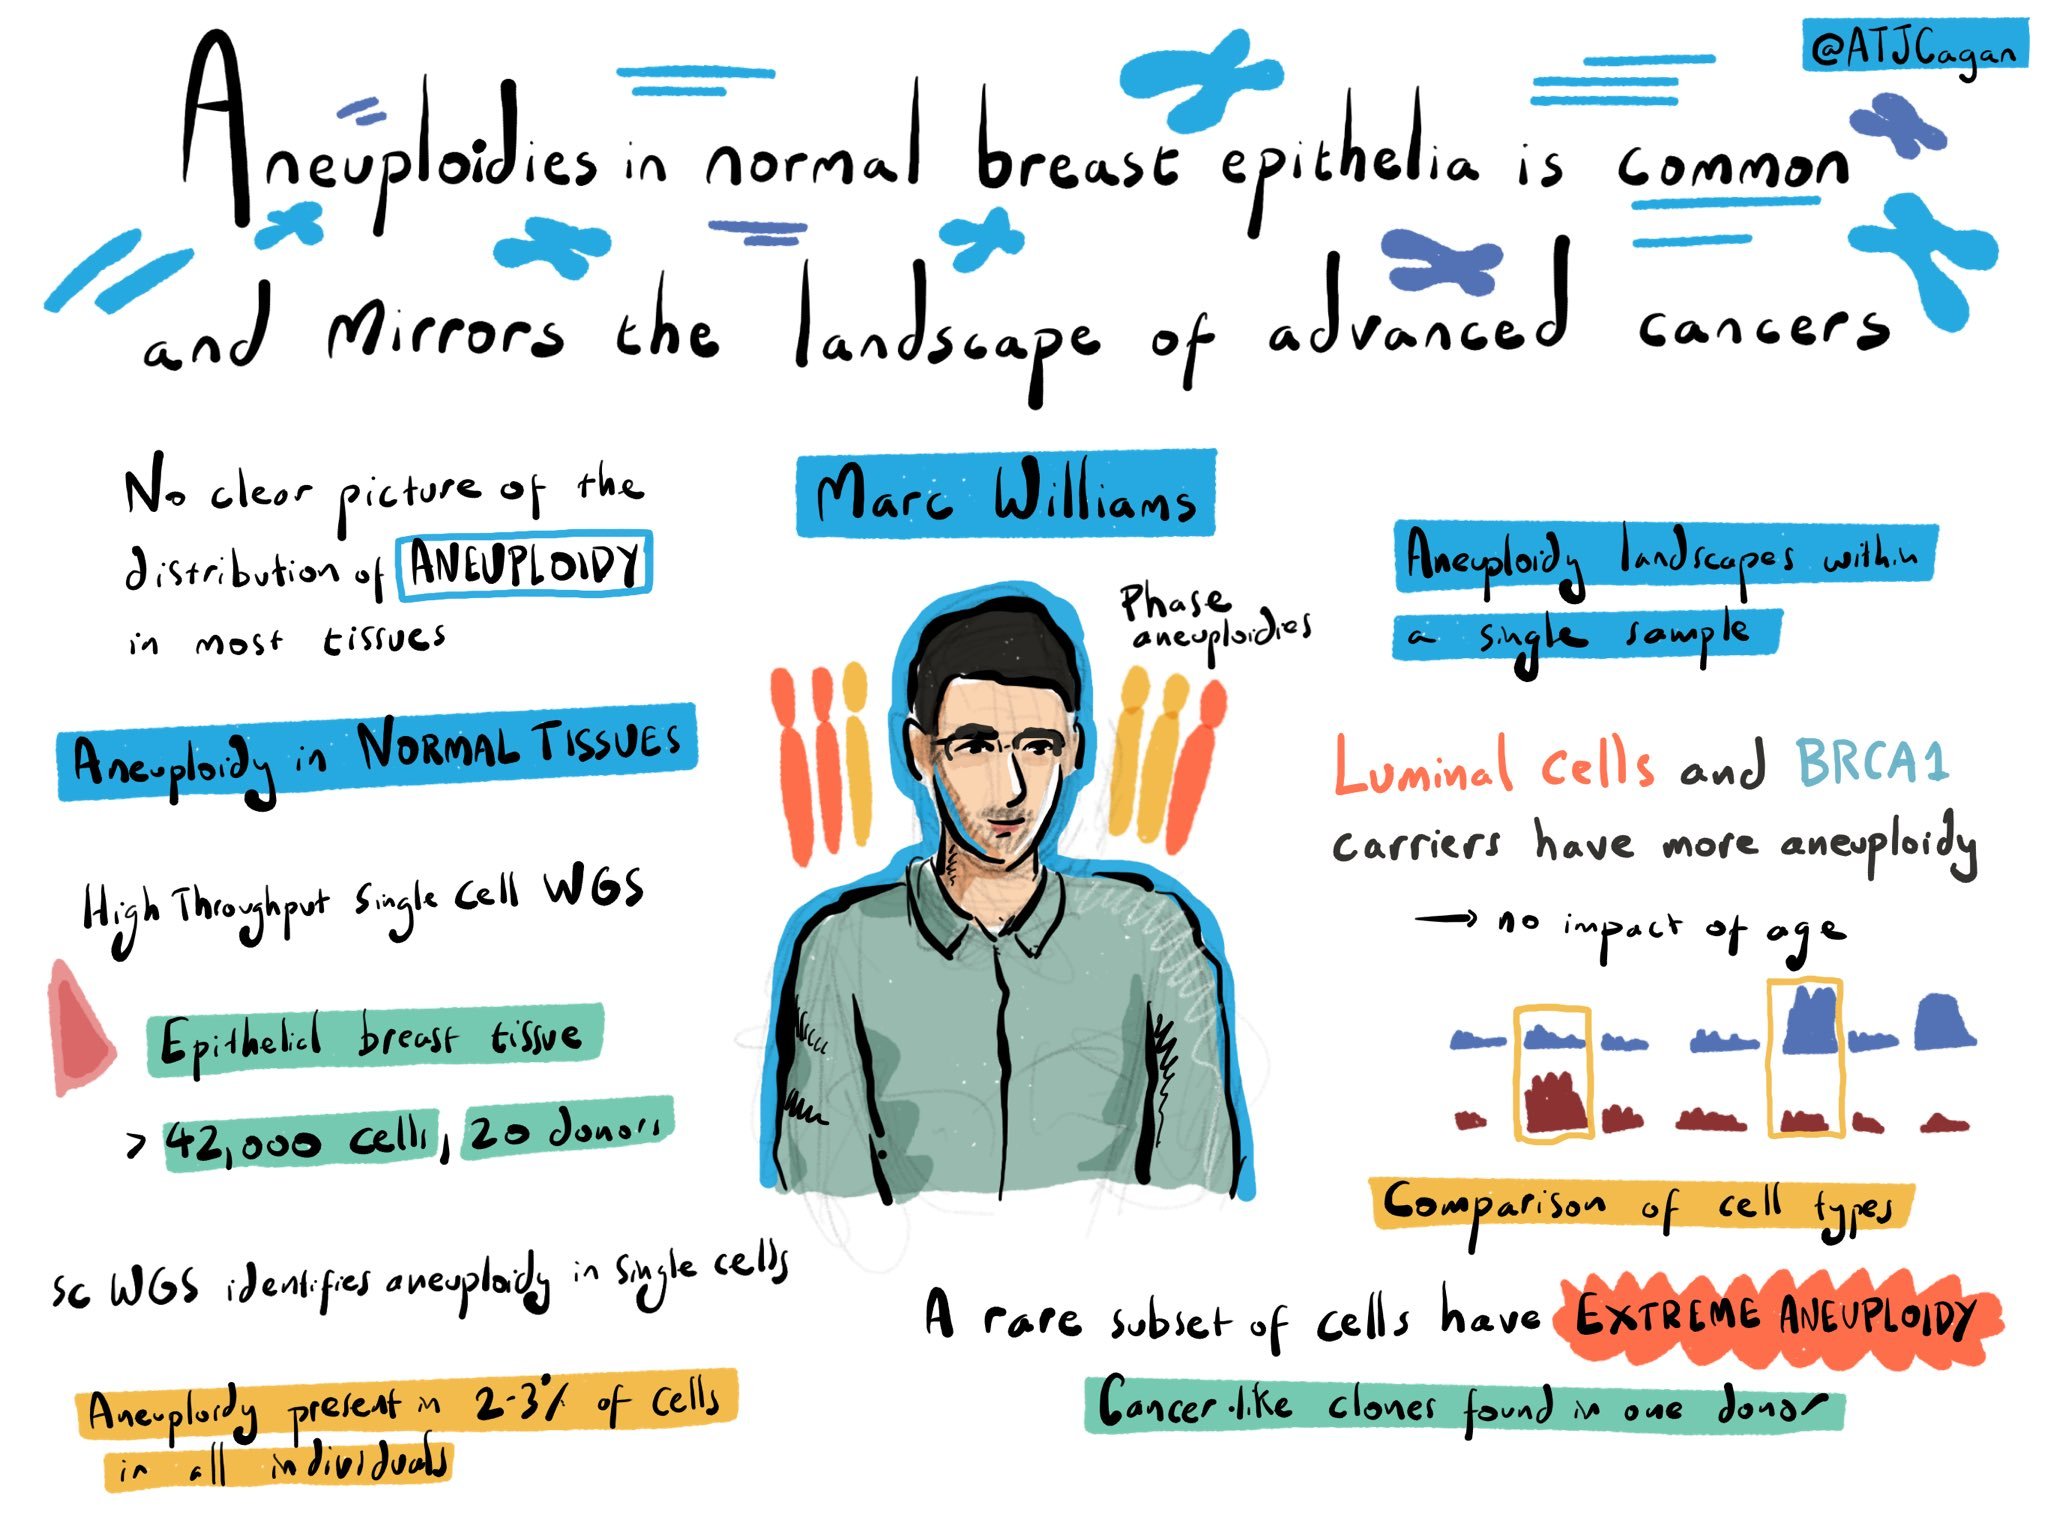 @ATJCagan
Aneuploidies in normal breast epithelia is common
and Mirrors the landscape of advanced cancers
Marc Williams
No clear picture of the
distribution of ANEUPLOIDY
in most tissues
Aneuploidy in NORMAL TISSUES
High Throughput Single Cell WGS
Epithelial breast tissue
> 42,000 cells, 20 donors
sc WGS identifies aneuploidy in single cells
Aneuploidy present in 2-3% of cells
in all individuals
Phase
aneuploidies
Aneuploidy landscapes within
a single sample
Luminal cells and BRCA1
carriers have more aneuploidy
→ no impact of age
Comparison of cell types
A rare subset of cells have EXTREME ANEUPLOIDY
Cancer-like clones found in one donor